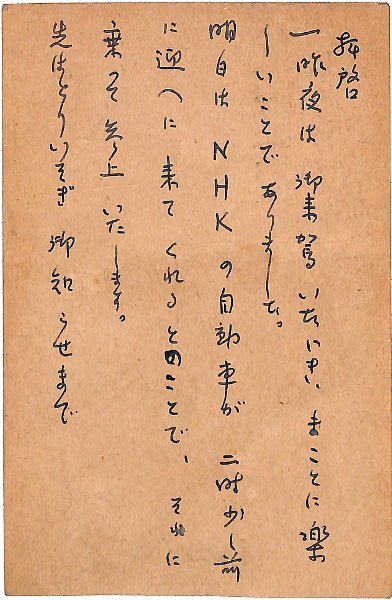 拝啓
一昨夜は御来駕いたゞき、まことに楽
しいことでありました。
明日はNHKの自動車が二時少し前
に迎へに来てくれるとのことで、それに
乗つて参上いたします。
先はとりいそぎ御知らせまで